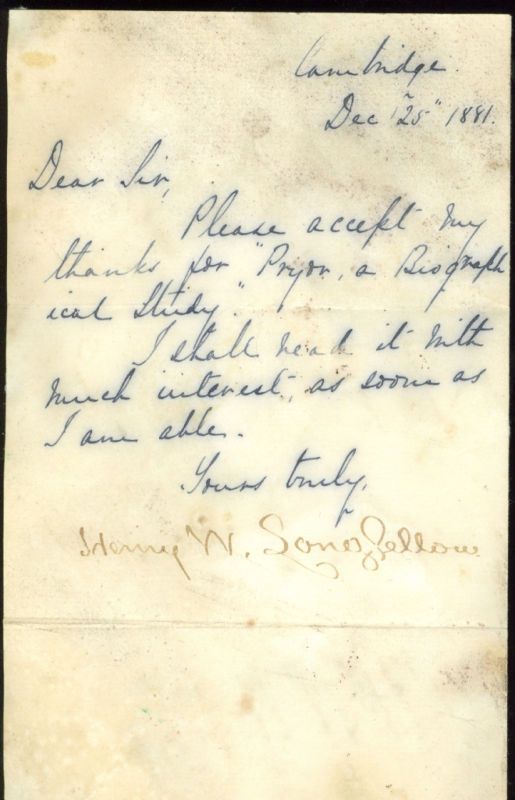 Cambridge.
Dec 25" 1881.
Dear Sir,
Please accept my
thanks for "Pryor, a Biograph
ical Study."
I shall read it with
much interest, as soon as
I am able.
Yours truly,
Henry W. Longfellow